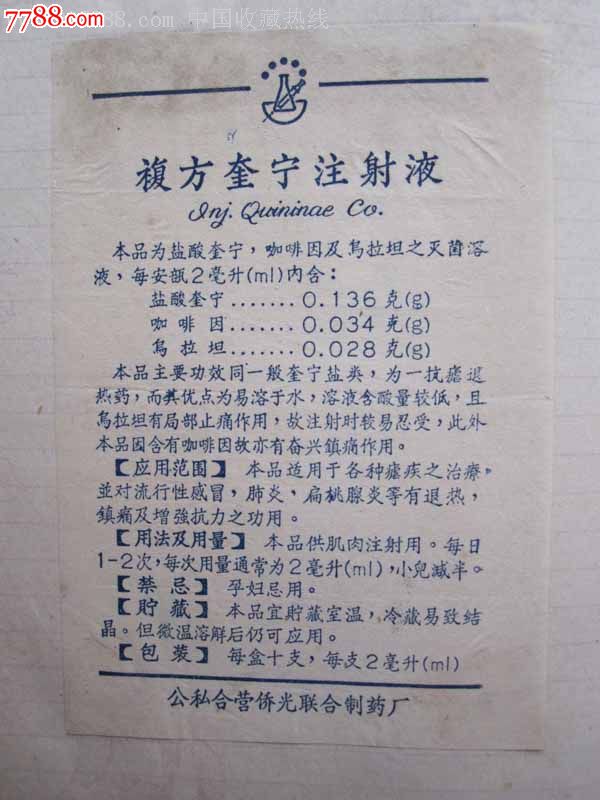 7788.com
7788.com 中国收藏热线
複方奎宁注射液
Inj. Quininae Co.
本品为盐酸奎宁，咖啡因及烏拉坦之灭菌溶
液，每安瓿2毫升(ml)内含：
盐酸奎宁.......0.136克(g)
咖啡因.......0.034克(g)
烏拉坦.......0.028克(g)
本品主要功效同一般奎宁盐类，为一抗瘧退
热药，而其优点为易溶于水，溶液含酸量较低，且
烏拉坦有局部止痛作用，故注射时较易忍受，此外
本品因含有咖啡因故亦有奋兴鎮痛作用。
【应用范围】 本品适用于各种瘧疾之治療。
並对流行性感冒，肺炎，扁桃腺炎等有退热，
鎮痛及增強抗力之功用。
【用法及用量】 本品供肌肉注射用。每日
1-2次，每次用量通常为2毫升(ml)，小兒减半。
【禁忌】 孕妇忌用。
【貯藏】 本品宜貯藏室温，冷藏易致结
晶。但微温溶解后仍可应用。
【包装】 每盒十支，每支2毫升(ml)
公私合营侨光联合制药厂